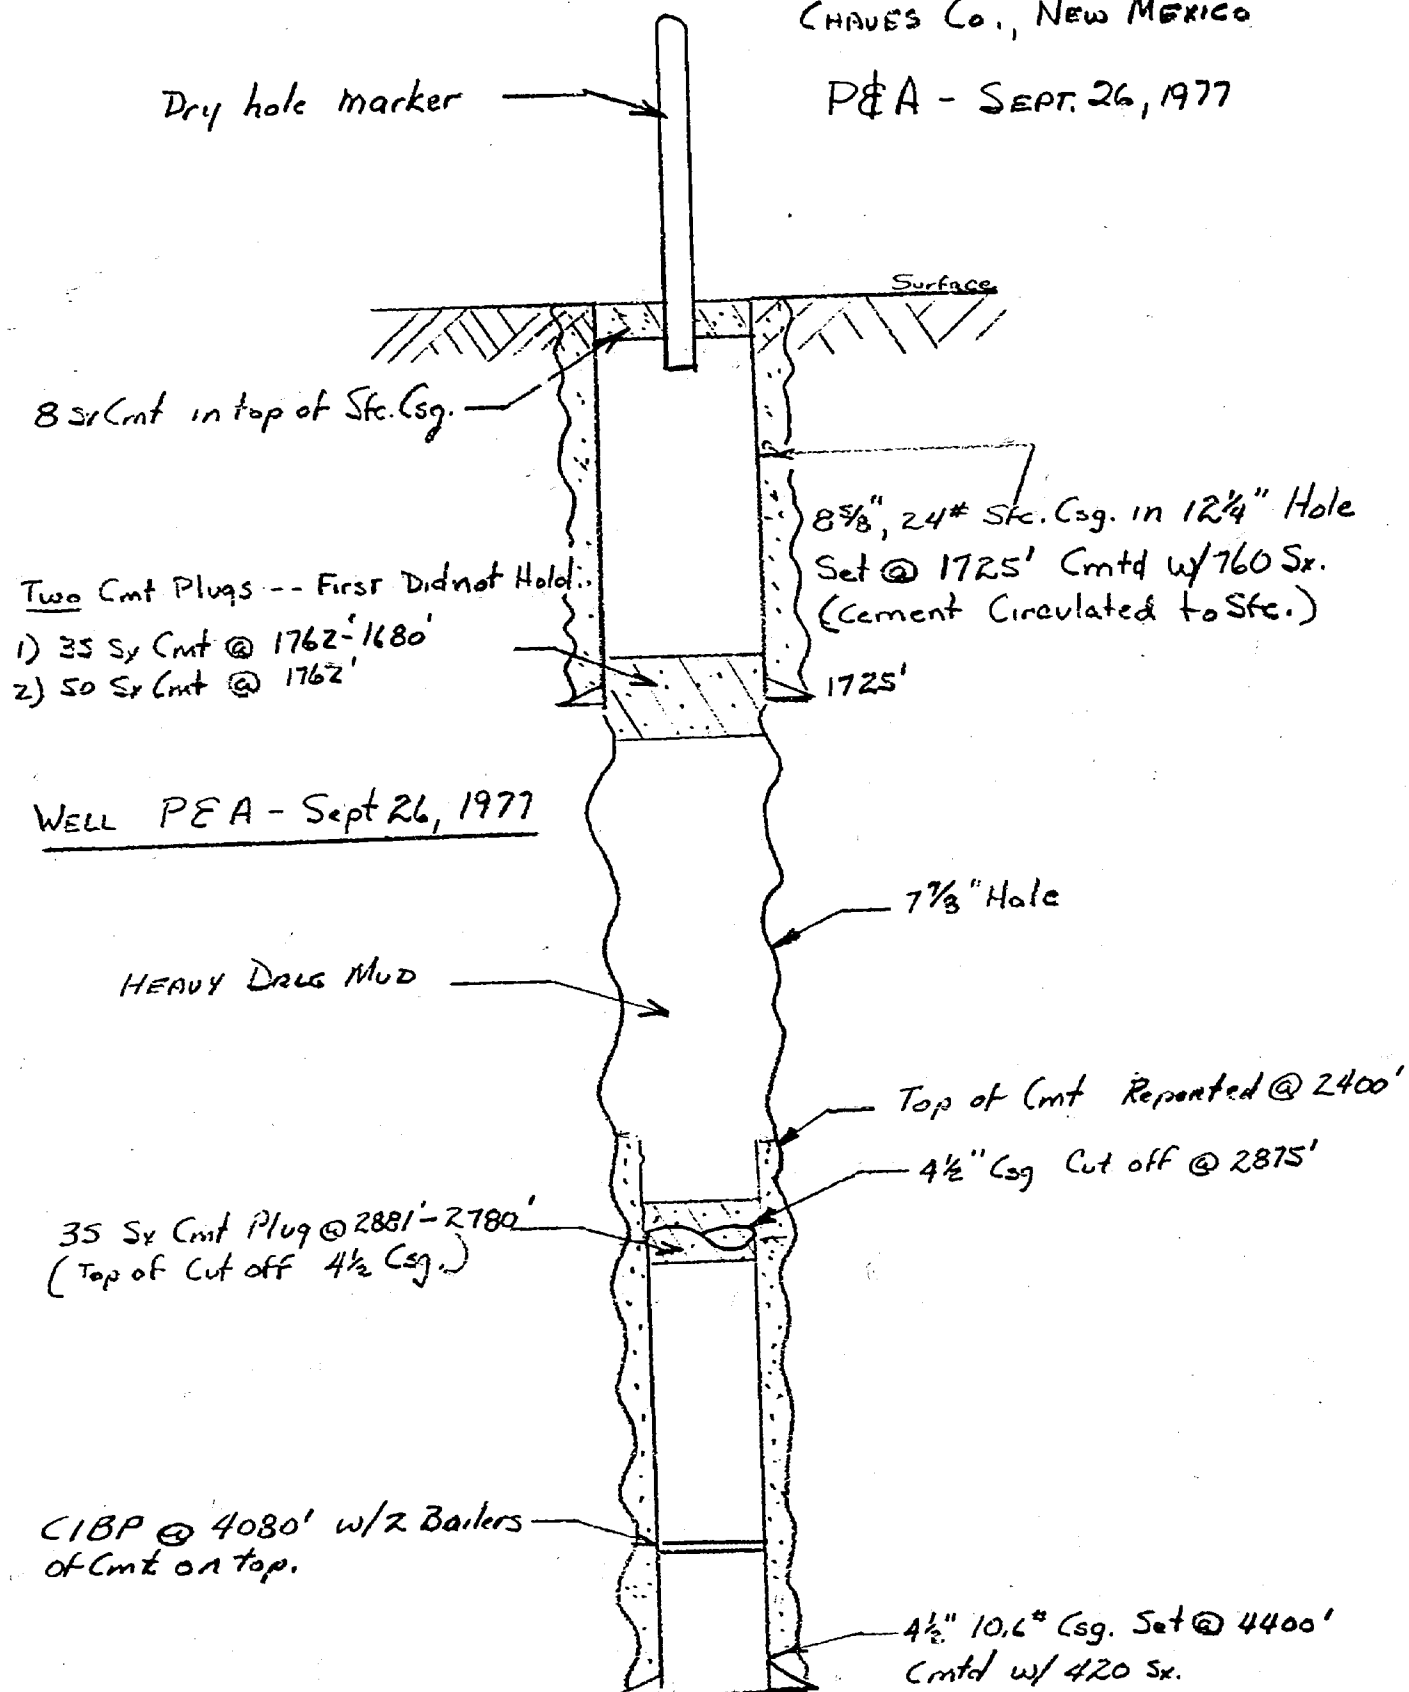 CHAVES Co., NEW MEXICO
P&A - SEPT. 26, 1977
Dry hole marker
Surface
8 Sx Cmt in top of Sfc. Csg.
8 5/8", 24# Sfc. Csg. in 12 1/4" Hole
Set @ 1725' Cmtd w/ 760 Sx.
(Cement Circulated to Sfc.)
Two Cmt Plugs -- First Did not Hold:
1) 35 Sx Cmt @ 1762'-1680'
2) 50 Sx Cmt @ 1762'
1725'
WELL P&A - Sept 26, 1977
7 7/8" Hole
HEAVY DRLG MUD
Top of Cmt Reported @ 2400'
4 1/2" Csg Cut off @ 2875'
35 Sx Cmt Plug @ 2881'-2780'
(Top of Cut off 4 1/2 Csg.)
CIBP @ 4080' w/2 Bailers
of Cmt on top.
4 1/2" 10.6# Csg. Set @ 4400'
Cmtd w/ 420 Sx.